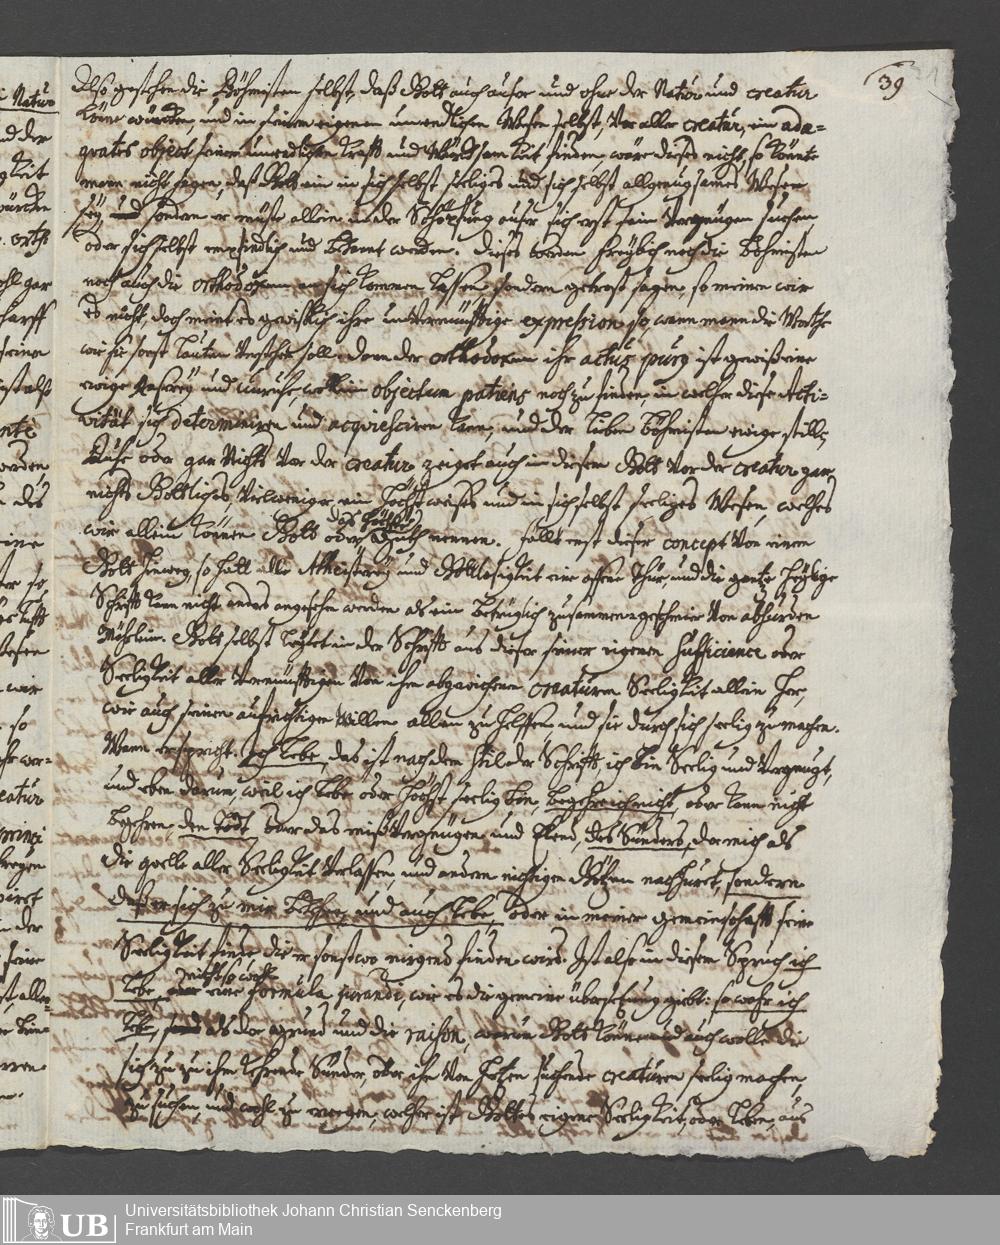 39
Also gestehen die Böhmisten selbst, daß Gott auch ausser und ohne der Natur und creatur
könne würcken, und in seinem eigenen unendlichen Wesen selbst, vor aller creatur, ein ada-
quates object seiner unendlichen Krafft und Würcksamkeit finden, wäre dieses nicht, so könte
mann nicht sagen, daß Gott ein in sich selbst seeliges und sich selbst allgenugsames Wesen
sey, sondern er müste allein in der Schöpfung ausser sich erst sein Vergnügen suchen,
oder sich selbst empfindlich und bekant werden. Dieses werden freylich noch die Böhmisten
noch auch die orthodoxen an sich kommen lassen sondern getrost sagen, so meinen wir
es nicht, doch meint es gewißlich ihre unvernünfftige expression so, wann mann die Worthe
wie sie sonst lauten verstehen soll, dann der orthodoxen ihr actus purus ist gewiß eine
ewige Raserey und unruhe, wo kein objectum patiens noch zu finden, in welchem diese Acti-
vität sich determiniren und acquiesciren kan, und der lieben Böhmisten ewige stille
Ruhe oder gar Nichts vor der creatur zeiget auch in diesem Gott vor der creatur gar
nichts Göttliches, vielweniger ein höchst weises und in sich selbst seeliges Wesen, welches
wir allein können Gott oder das höchste Guth nennen. fället erst dieser concept von einem
Gott hinweg, so hatt alle Atheisterey und Gottlosigkeit eine offene Thür, und die gantze heylige
Schrifft kann nicht anders angesehen werden als ein betrüglich zusammen-geschmier von absurden
Mährlein. Gott selbst leytet in der Schrifft aus dieser seiner eigenen sufficience oder
Seeligkeit aller vernünfftigen von ihm abgewichenen creaturen Seeligkeit allein her,
wie auch seinen aufrichtigen willen allen zu helffen, und sie durch sich seelig zu machen.
Wann er spricht: ich lebe, das ist nach dem stil der Schrifft, ich bin seelig und vergnügt,
und eben darum, weil ich lebe oder höchst seelig bin, begehre ich nicht, oder kann nicht
begehren, den todt oder das mißvergnügen und Elend, des Sünders, der mich als
die quelle aller Seeligkeit verlassen, und andern nichtigen Götzen nachhuret, sondern
daß er sich zu mir bekehre, und auch lebe, oder in meiner gemeinschafft seine
Seeligkeit finde die er sonst wo nirgens finden wird. Ist also in diesem Spruch ich
lebe, nicht so wohl eine formula jurandi, wie es die gemeine übersetzung giebt: so wahr ich
lebe, als der grund und die raison, warum Gott könne und auch wolle die
sich zu ihm kehrende Sünder, oder ihn von hertzen suchende creaturen seelig machen,
zu suchen, und wohl zu merken, welcher ist Gottes eigene Seeligkeit, oder leben, aus
Universitätsbibliothek Johann Christian Senckenberg
Frankfurt am Main
UB